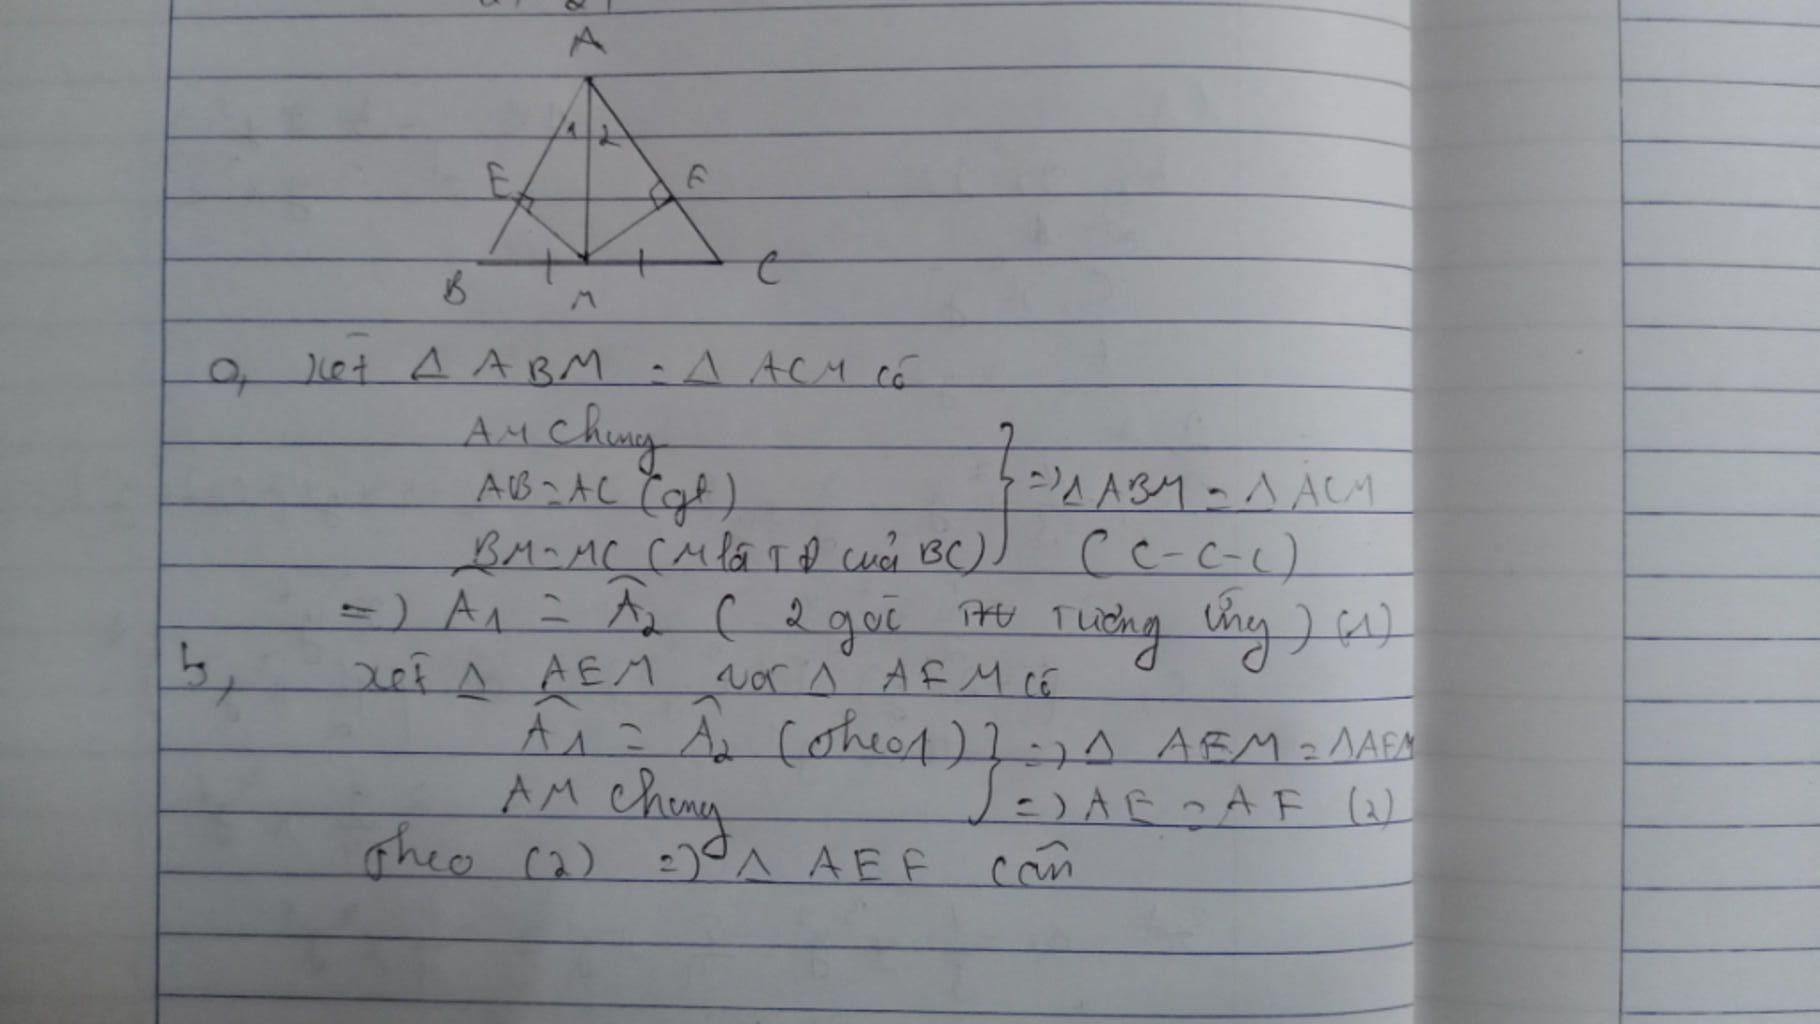 A
1 2
E F
B M C
a, xét Δ ABM = Δ ACM có
AM chung
AB = AC (gt)
BM = MC (M là TĐ của BC)
} => Δ ABM = Δ ACM
(C-C-C)
=> Â1 = Â2 ( 2 góc tương ứng ) (1)
b, xét Δ AEM với Δ AFM có
Â1 = Â2 (theo 1) } => Δ AEM = Δ AFM
AM chung => AE = AF (2)
theo (2) => Δ AEF cân